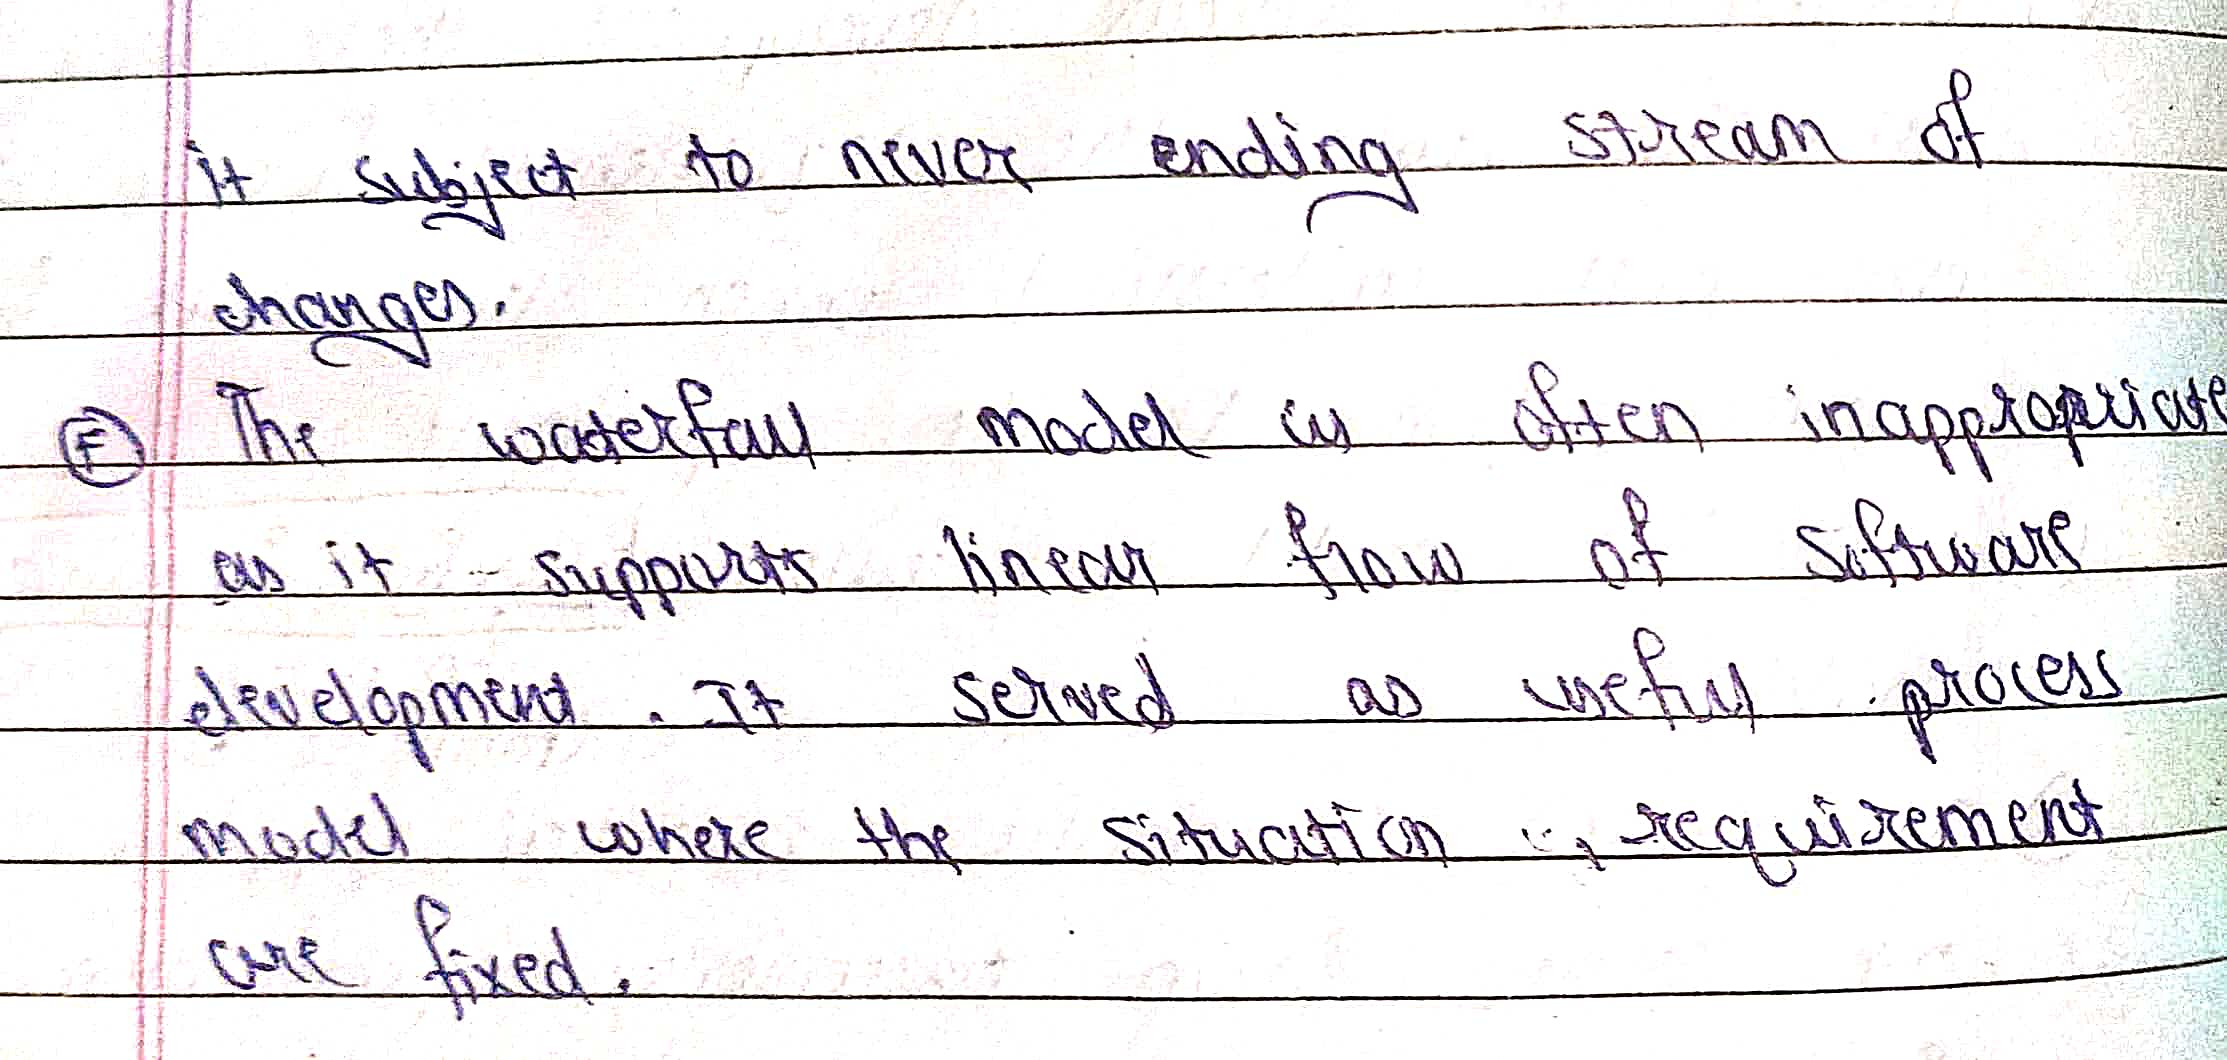 it subject to never ending stream of
changes.
F The waterfall model is often inappropriate
as it supports linear flow of software
development. It served as useful process
model where the situation , requirement
are fixed.